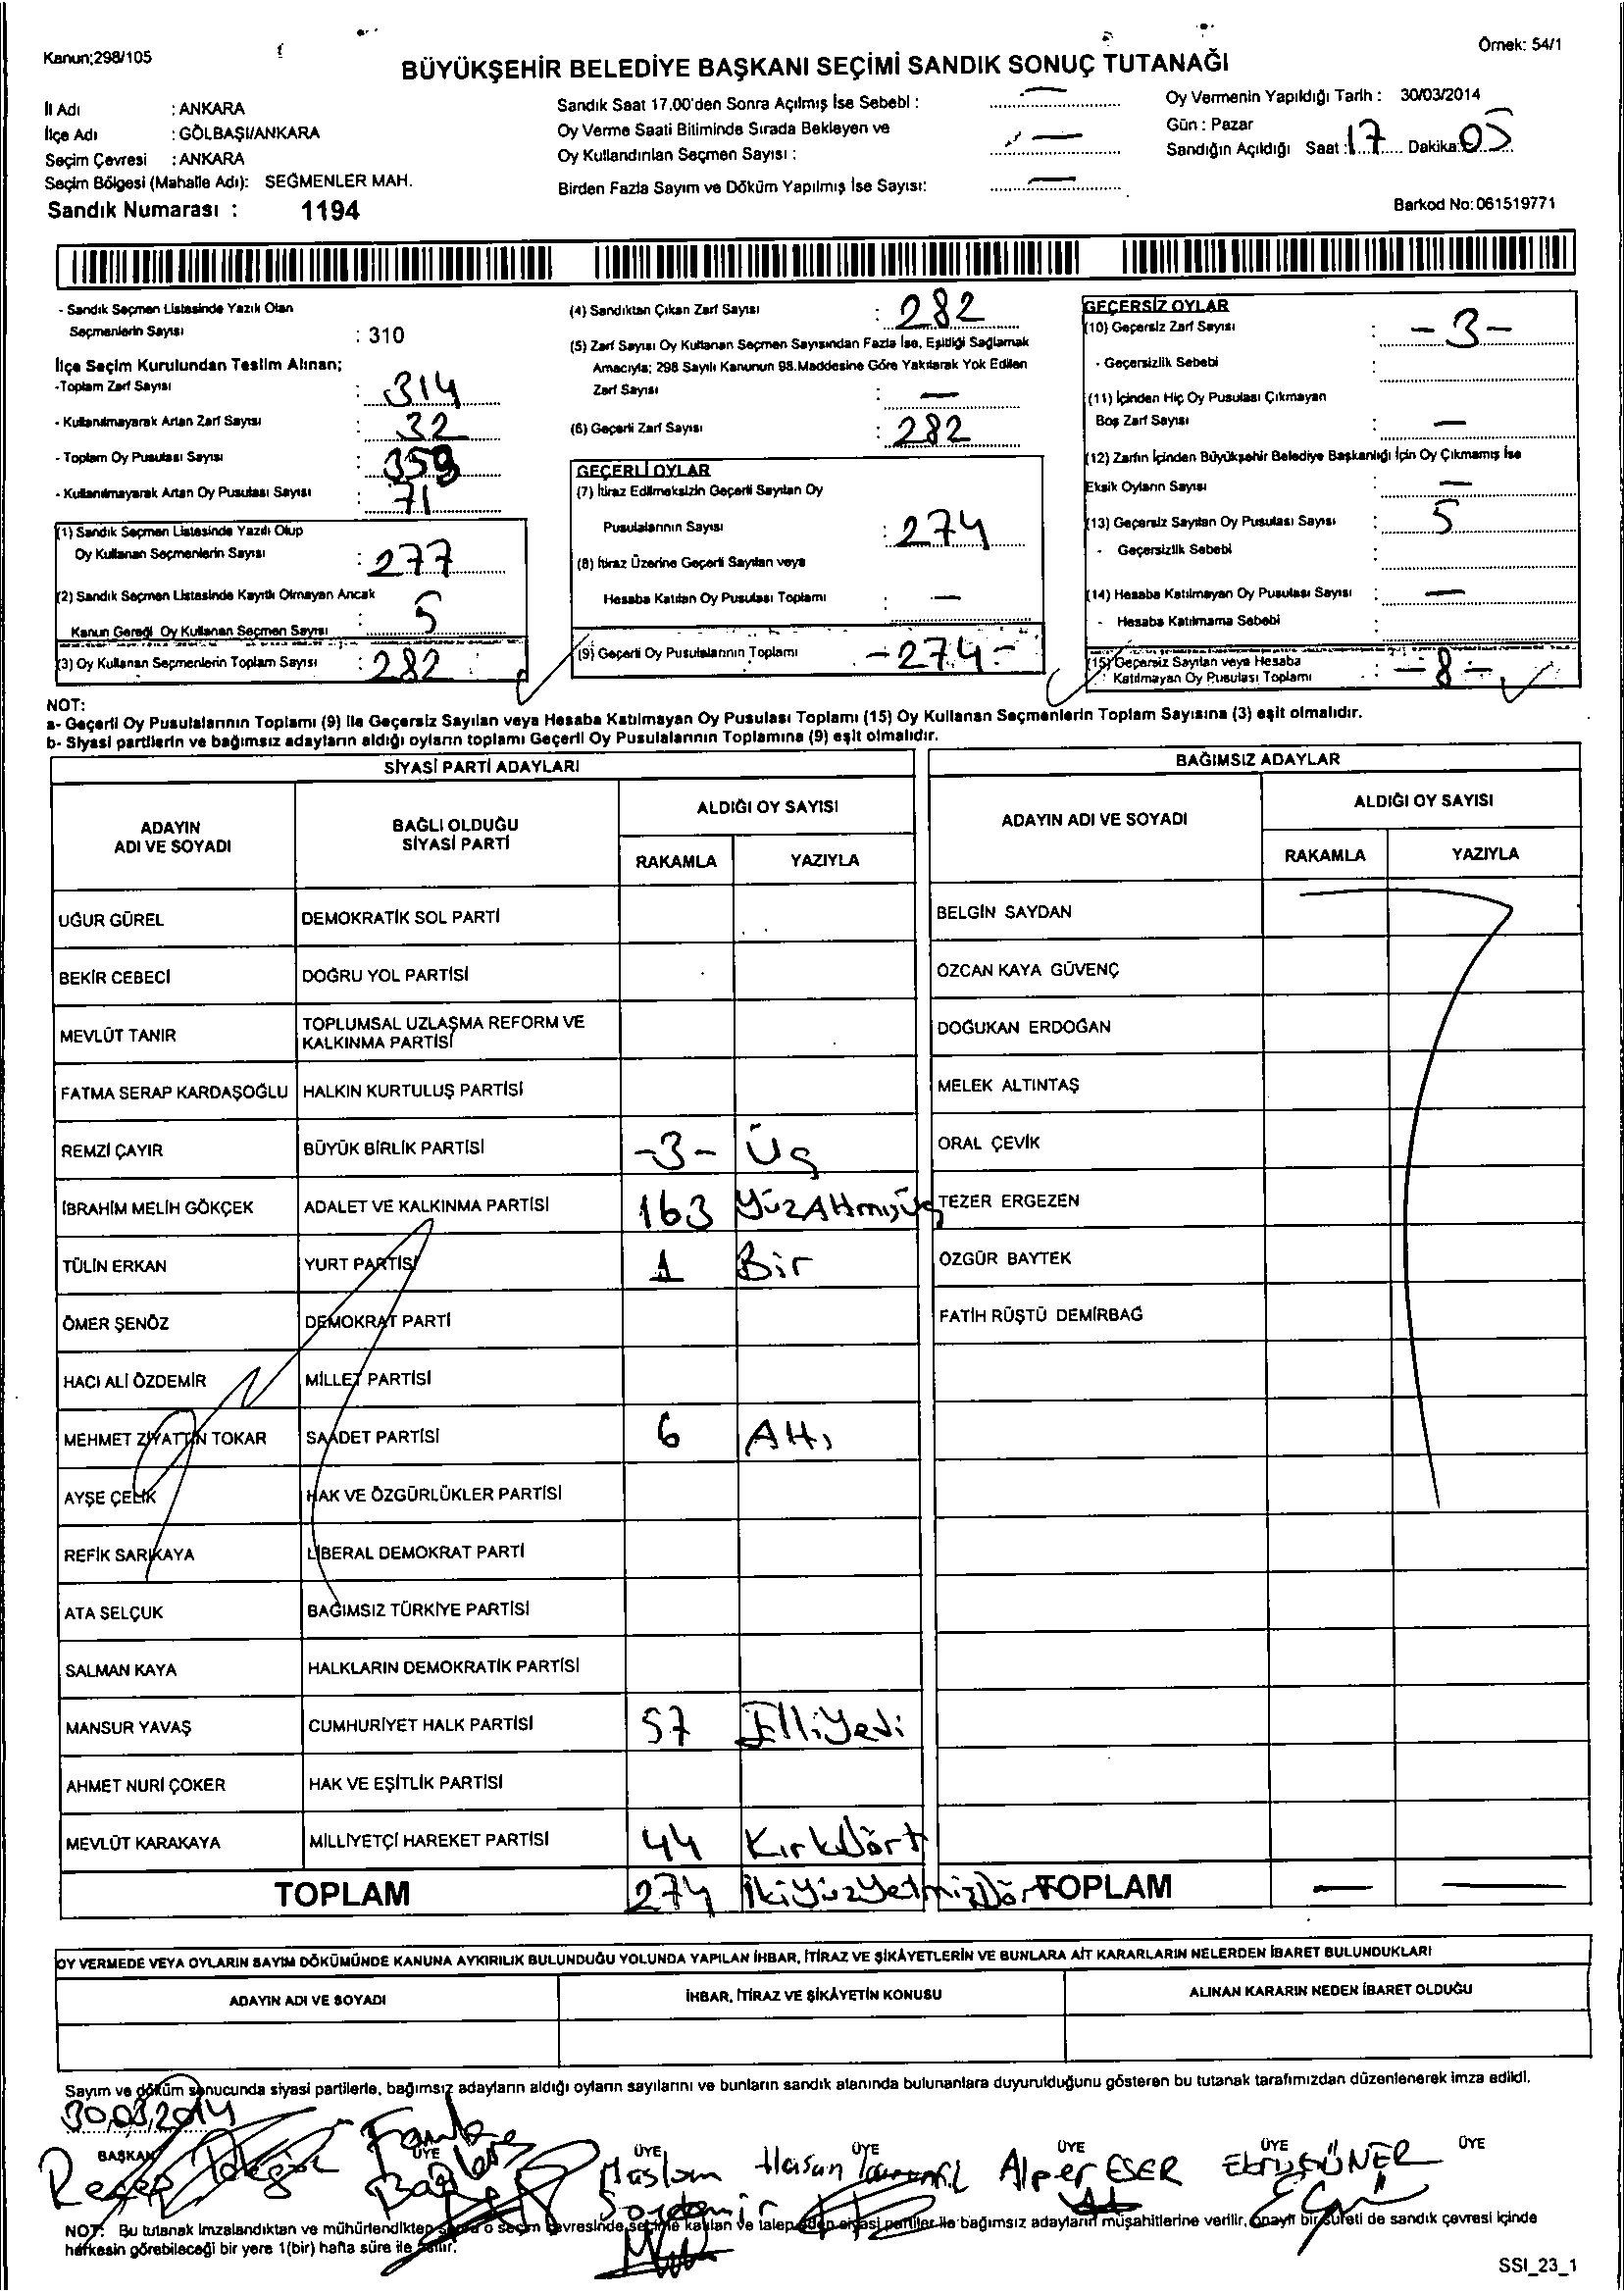 Kanun;298/105
Örnek: 54/1
BÜYÜKŞEHİR BELEDİYE BAŞKANI SEÇİMİ SANDIK SONUÇ TUTANAĞI
İl Adı : ANKARA
İlçe Adı : GÖLBAŞI/ANKARA
Seçim Çevresi : ANKARA
Seçim Bölgesi (Mahalle Adı): SEĞMENLER MAH.
Sandık Numarası : 1194
Sandık Saat 17.00'den Sonra Açılmış İse Sebebi : —
Oy Verme Saati Bitiminde Sırada Bekleyen ve
Oy Kullandırılan Seçmen Sayısı : —
Birden Fazla Sayım ve Döküm Yapılmış İse Sayısı: —
Oy Vermenin Yapıldığı Tarih : 30/03/2014
Gün : Pazar
Sandığın Açıldığı Saat : 17 Dakika: 05
Barkod No: 061519771
- Sandık Seçmen Listesinde Yazılı Olan
Seçmenlerin Sayısı : 310
İlçe Seçim Kurulundan Teslim Alınan;
-Toplam Zarf Sayısı : 314
- Kullanılmayarak Artan Zarf Sayısı : 32
- Toplam Oy Pusulası Sayısı : 359
- Kullanılmayarak Artan Oy Pusulası Sayısı : 71
(1) Sandık Seçmen Listesinde Yazılı Olup
Oy Kullanan Seçmenlerin Sayısı : 277
(2) Sandık Seçmen Listesinde Kayıtlı Olmayan Ancak
Kanun Gereği Oy Kullanan Seçmen Sayısı : 5
(3) Oy Kullanan Seçmenlerin Toplam Sayısı : 282
(4) Sandıktan Çıkan Zarf Sayısı : 282
(5) Zarf Sayısı Oy Kullanan Seçmen Sayısından Fazla İse, Eşitliği Sağlamak
Amacıyla; 298 Sayılı Kanunun 98.Maddesine Göre Yakılarak Yok Edilen
Zarf Sayısı : —
(6) Geçerli Zarf Sayısı : 282
GEÇERLİ OYLAR
(7) İtiraz Edilmeksizin Geçerli Sayılan Oy
Pusulalarının Sayısı : 274
(8) İtiraz Üzerine Geçerli Sayılan veya
Hesaba Katılan Oy Pusulası Toplamı : —
(9) Geçerli Oy Pusulalarının Toplamı -274-
GEÇERSİZ OYLAR
(10) Geçersiz Zarf Sayısı : -3-
- Geçersizlik Sebebi :
(11) İçinden Hiç Oy Pusulası Çıkmayan
Boş Zarf Sayısı : —
(12) Zarfın İçinden Büyükşehir Belediye Başkanlığı İçin Oy Çıkmamış İse
Eksik Oyların Sayısı : —
(13) Geçersiz Sayılan Oy Pusulası Sayısı : 5
- Geçersizlik Sebebi :
(14) Hesaba Katılmayan Oy Pusulası Sayısı : —
- Hesaba Katılmama Sebebi :
(15) Geçersiz Sayılan veya Hesaba
Katılmayan Oy Pusulası Toplamı : -8-
NOT:
a- Geçerli Oy Pusulalarının Toplamı (9) ile Geçersiz Sayılan veya Hesaba Katılmayan Oy Pusulası Toplamı (15) Oy Kullanan Seçmenlerin Toplam Sayısına (3) eşit olmalıdır.
b- Siyasi partilerin ve bağımsız adayların aldığı oyların toplamı Geçerli Oy Pusulalarının Toplamına (9) eşit olmalıdır.
SİYASİ PARTİ ADAYLARI
ADAYIN ADI VE SOYADI BAĞLI OLDUĞU SİYASİ PARTİ ALDIĞI OY SAYISI
RAKAMLA YAZIYLA
UĞUR GÜREL DEMOKRATİK SOL PARTİ
BEKİR CEBECİ DOĞRU YOL PARTİSİ
MEVLÜT TANIR TOPLUMSAL UZLAŞMA REFORM VE KALKINMA PARTİSİ
FATMA SERAP KARDAŞOĞLU HALKIN KURTULUŞ PARTİSİ
REMZİ ÇAYIR BÜYÜK BİRLİK PARTİSİ -3- Üç
İBRAHİM MELİH GÖKÇEK ADALET VE KALKINMA PARTİSİ 163 YüzAltmışüç
TÜLİN ERKAN YURT PARTİSİ 1 Bir
ÖMER ŞENÖZ DEMOKRAT PARTİ
HACI ALİ ÖZDEMİR MİLLET PARTİSİ
MEHMET ZİYATTİN TOKAR SAADET PARTİSİ 6 Altı
AYŞE ÇELİK HAK VE ÖZGÜRLÜKLER PARTİSİ
REFİK SARIKAYA LİBERAL DEMOKRAT PARTİ
ATA SELÇUK BAĞIMSIZ TÜRKİYE PARTİSİ
SALMAN KAYA HALKLARIN DEMOKRATİK PARTİSİ
MANSUR YAVAŞ CUMHURİYET HALK PARTİSİ 57 ElliYedi
AHMET NURİ ÇOKER HAK VE EŞİTLİK PARTİSİ
MEVLÜT KARAKAYA MİLLİYETÇİ HAREKET PARTİSİ 44 KırkDört
TOPLAM 274 İkiyüzYetmişDört
BAĞIMSIZ ADAYLAR
ADAYIN ADI VE SOYADI ALDIĞI OY SAYISI
RAKAMLA YAZIYLA
BELGİN SAYDAN
ÖZCAN KAYA GÜVENÇ
DOĞUKAN ERDOĞAN
MELEK ALTINTAŞ
ORAL ÇEVİK
TEZER ERGEZEN
ÖZGÜR BAYTEK
FATİH RÜŞTÜ DEMİRBAĞ
TOPLAM — —
OY VERMEDE VEYA OYLARIN SAYIM DÖKÜMÜNDE KANUNA AYKIRILIK BULUNDUĞU YOLUNDA YAPILAN İHBAR, İTİRAZ VE ŞİKÂYETLERİN VE BUNLARA AİT KARARLARIN NELERDEN İBARET BULUNDUKLARI
ADAYIN ADI VE SOYADI İHBAR, İTİRAZ VE ŞİKÂYETİN KONUSU ALINAN KARARIN NEDEN İBARET OLDUĞU
Sayım ve döküm sonucunda siyasi partilerle, bağımsız adayların aldığı oyların sayılarını ve bunların sandık alanında bulunanlara duyurulduğunu gösteren bu tutanak tarafımızdan düzenlenerek imza edildi.
30.03.2014
BAŞKAN ÜYE ÜYE ÜYE ÜYE ÜYE ÜYE
Recep Hasan Alper ESER Ebru GÜNER
NOT: Bu tutanak imzalandıktan ve mühürlendikten sonra o seçim çevresinde seçime katılan ve talep eden siyasi partiler ile bağımsız adayların müşahitlerine verilir, onaylı bir sureti de sandık çevresi içinde
herkesin görebileceği bir yere 1(bir) hafta süre ile asılır.
SSI_23_1